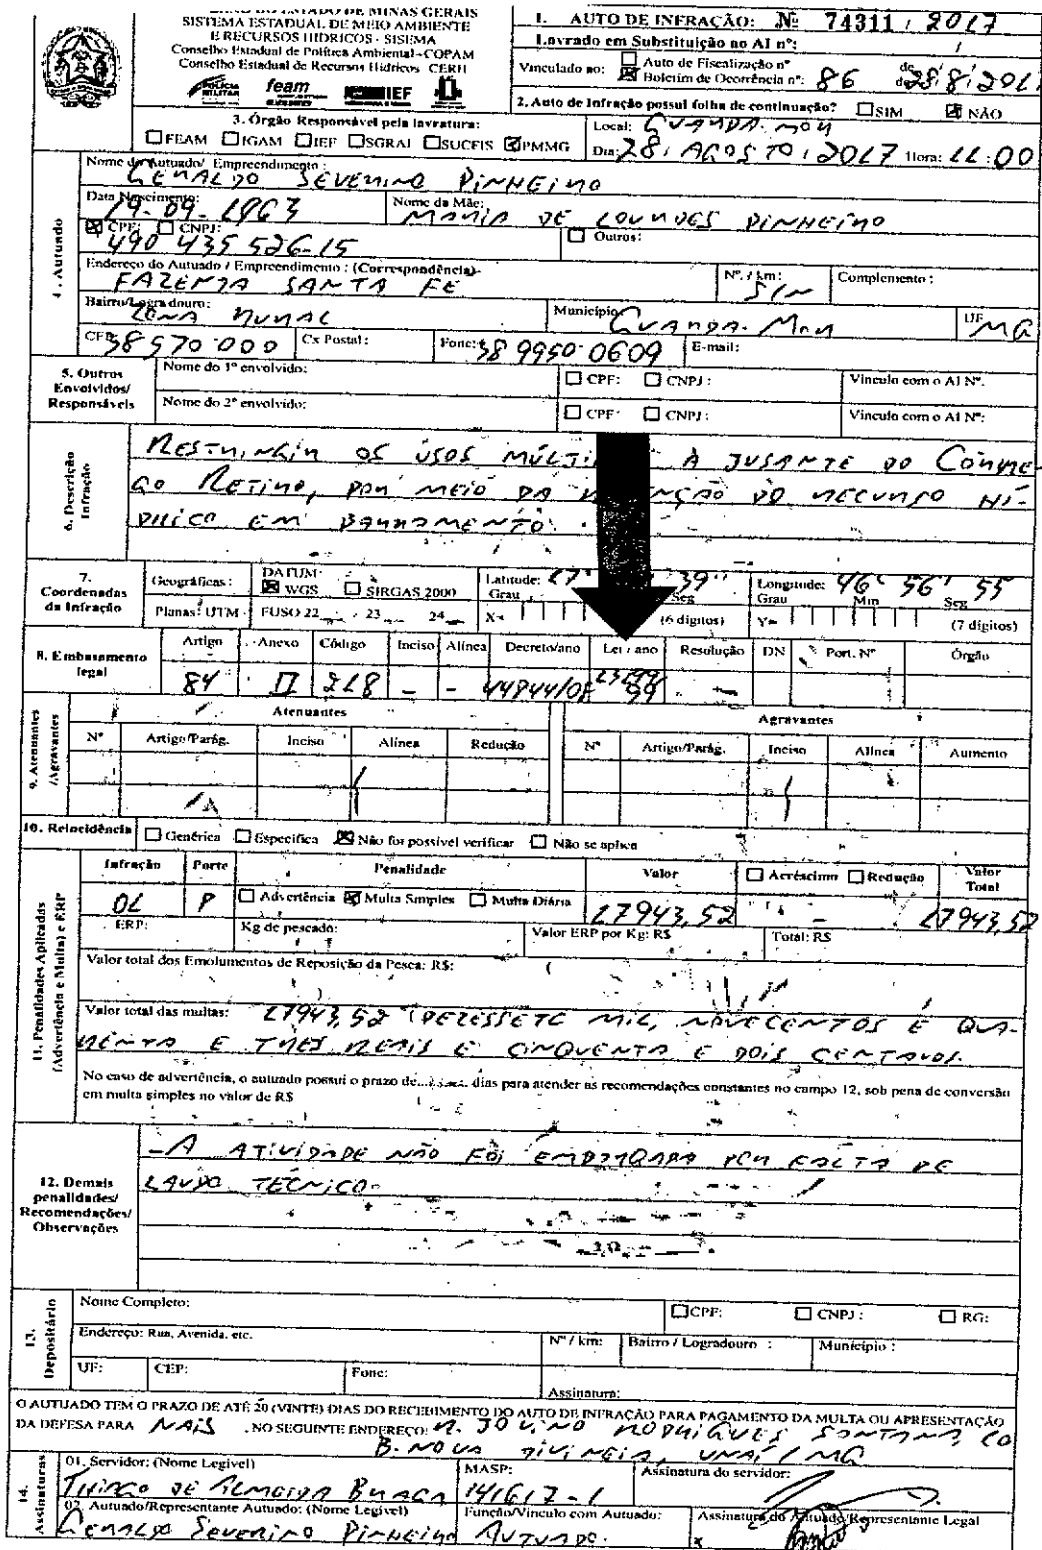 DO ESTADO DE MINAS GERAIS
SISTEMA ESTADUAL DE MEIO AMBIENTE
E RECURSOS HIDRICOS - SISEMA
Conselho Estadual de Política Ambiental - COPAM
Conselho Estadual de Recursos Hídricos CERH
POLÍCIA MILITAR feam IEF
1. AUTO DE INFRAÇÃO: Nº 74311 / 2017
Lavrado em Substituição ao AI nº: /
Vinculado ao: Auto de Fiscalização nº de
Boletim de Ocorrência nº: 86 de 28/8/201
2. Auto de Infração possui folha de continuação? SIM NÃO
3. Órgão Responsável pela lavratura:
FEAM IGAM IEF SGRAI SUCFIS PMMG
Local: GUARDA-MOR
Dia: 28 / AGOSTO / 2017 Hora: 11:00
4. Autuado
Nome do Autuado/ Empreendimento:
GERALDO SEVERINO PINHEIRO
Data Nascimento: Nome da Mãe:
19-09-1963 MARIA DE LOURDES PINHEIRO
CPF: CNPJ: Outros:
490 435 526-15
Endereço do Autuado / Empreendimento: (Correspondência)- Nº. / km: Complemento:
FAZENDA SANTA FE S/N
Bairro/Logradouro: Município: UF
ZONA RURAL GUARDA-MOR MG
CEP: 38570-000 Cx Postal: Fone: 38 9950-0609 E-mail:
5. Outros Envolvidos/ Responsáveis
Nome do 1º envolvido: CPF: CNPJ: Vínculo com o AI Nº.
Nome do 2º envolvido: CPF: CNPJ: Vínculo com o AI Nº:
6. Descrição Infração
RESTRINGIR OS USOS MÚLTI A JUSANTE DO CÓRRE-
GO RETIRO, POR MEIO DA DO RECURSO HÍ-
DRICO EM BARRAMENTO.
7. Coordenadas da Infração
Geográficas: DATUM: WGS SIRGAS 2000 Latitude: 17° 39" Longitude: 46° 56' 55
Grau Seg Grau Min Seg
Planas: UTM FUSO 22 23 24 X= (6 dígitos) Y= (7 dígitos)
8. Embasamento legal
Artigo Anexo Código Inciso Alínea Decreto/ano Lei / ano Resolução DN Port. Nº Órgão
84 II 218 - - 44844/08 99 -
9. Atenuantes /Agravantes
Atenuantes Agravantes
Nº Artigo/Parág. Inciso Alínea Redução Nº Artigo/Parág. Inciso Alínea Aumento
10. Reincidência Genérica Específica Não foi possível verificar Não se aplica
11. Penalidades Aplicadas (Advertência e Multa) e ERP
Infração Porte Penalidade Valor Acréscimo Redução Valor Total
01 P Advertência Multa Simples Multa Diária 17943,52 - 17943,52
ERP: Kg de pescado: Valor ERP por Kg: R$ Total: R$
Valor total dos Emolumentos de Reposição da Pesca: R$:
Valor total das multas: 17943,52 (DEZESSETE MIL, NOVECENTOS E QUA-
RENTA E TRES REAIS E CINQUENTA E DOIS CENTAVOS.
No caso de advertência, o autuado possui o prazo de dias para atender as recomendações constantes no campo 12, sob pena de conversão
em multa simples no valor de R$
12. Demais penalidades/ Recomendações/ Observações
- A ATIVIDADE NÃO FOI EMBARGADA POR FALTA DE
LAUDO TECNICO.
13. Depositário
Nome Completo: CPF: CNPJ: RG:
Endereço: Rua, Avenida, etc. Nº / km: Bairro / Logradouro : Município :
UF: CEP: Fone: Assinatura:
O AUTUADO TEM O PRAZO DE ATÉ 20 (VINTE) DIAS DO RECEBIMENTO DO AUTO DE INFRAÇÃO PARA PAGAMENTO DA MULTA OU APRESENTAÇÃO
DA DEFESA PARA NAIS . NO SEGUINTE ENDEREÇO: R. JOVINO RODRIGUES SANTANA, 10
B. NOVA DIVINEIA, UNAÍ / MG
14. Assinaturas
01. Servidor: (Nome Legível) MASP: Assinatura do servidor:
THIAGO DE ALMEIDA BRAGA 141617-1
02. Autuado/Representante Autuado: (Nome Legível) Função/Vínculo com Autuado: Assinatura do Autuado/Representante Legal
GERALDO SEVERINO PINHEIRO AUTUADO. x